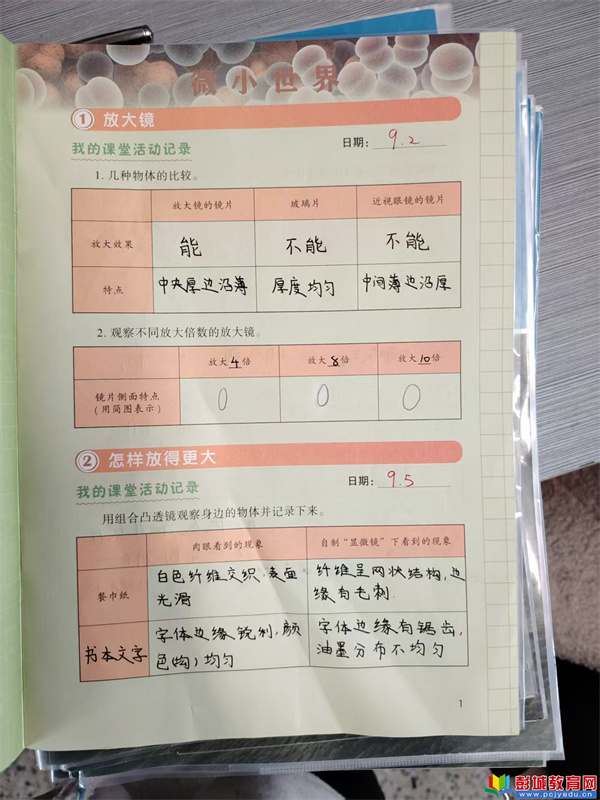 微小世界
① 放大镜
我的课堂活动记录 日期：9.2
1. 几种物体的比较。
放大镜的镜片 玻璃片 近视眼镜的镜片
放大效果 能 不能 不能
特点 中央厚边沿薄 厚度均匀 中间薄边沿厚
2. 观察不同放大倍数的放大镜。
放大4倍 放大8倍 放大10倍
镜片侧面特点
(用简图表示)
② 怎样放得更大
我的课堂活动记录 日期：9.5
用组合凸透镜观察身边的物体并记录下来。
肉眼看到的现象 自制“显微镜”下看到的现象
餐巾纸
白色纤维交织，表面
光滑
纤维呈网状结构，边
缘有毛刺.
书本文字
字体边缘锐利，颜
色均匀
字体边缘有锯齿，
油墨分布不均匀
1
彭城教育网
www.pcjyedu.cn